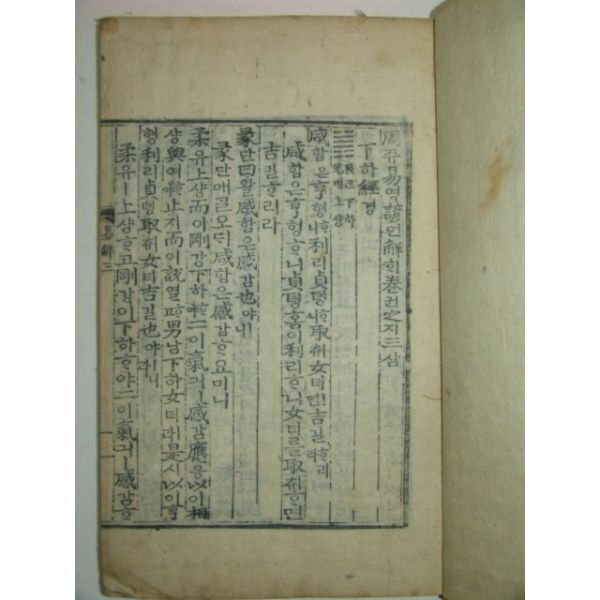 周쥬易역諺언解ᄒᆡ卷권之지三삼
下하經경
艮간下하
兌태上샹
咸함은亨형ᄒᆞ니利리貞뎡ᄒᆞ니取ᄎᆔ女녀면吉길ᄒᆞ리
咸함은亨형ᄒᆞ니貞뎡홈이利리ᄒᆞ니女녀를取ᄎᆔᄒᆞ면
吉길ᄒᆞ리라
彖단曰왈咸함은感감也야ㅣ니
彖단애ᄀᆞᆯ오ᄃᆡ咸함은感감ᄒᆞ요미니
柔유上샹而이剛강下하ᄒᆞ야二이氣긔ㅣ感감應응以이相
샹與여ᄒᆞ야止지而이說열ᄒᆞ고男남下하女녀ㅣ라是시以이亨
형利리貞뎡取ᄎᆔ女녀吉길也야ㅣ니라
柔유ㅣ上샹ᄒᆞ고剛강이下하ᄒᆞ야二이氣긔ㅣ感감ᄒᆞ
易解三 一